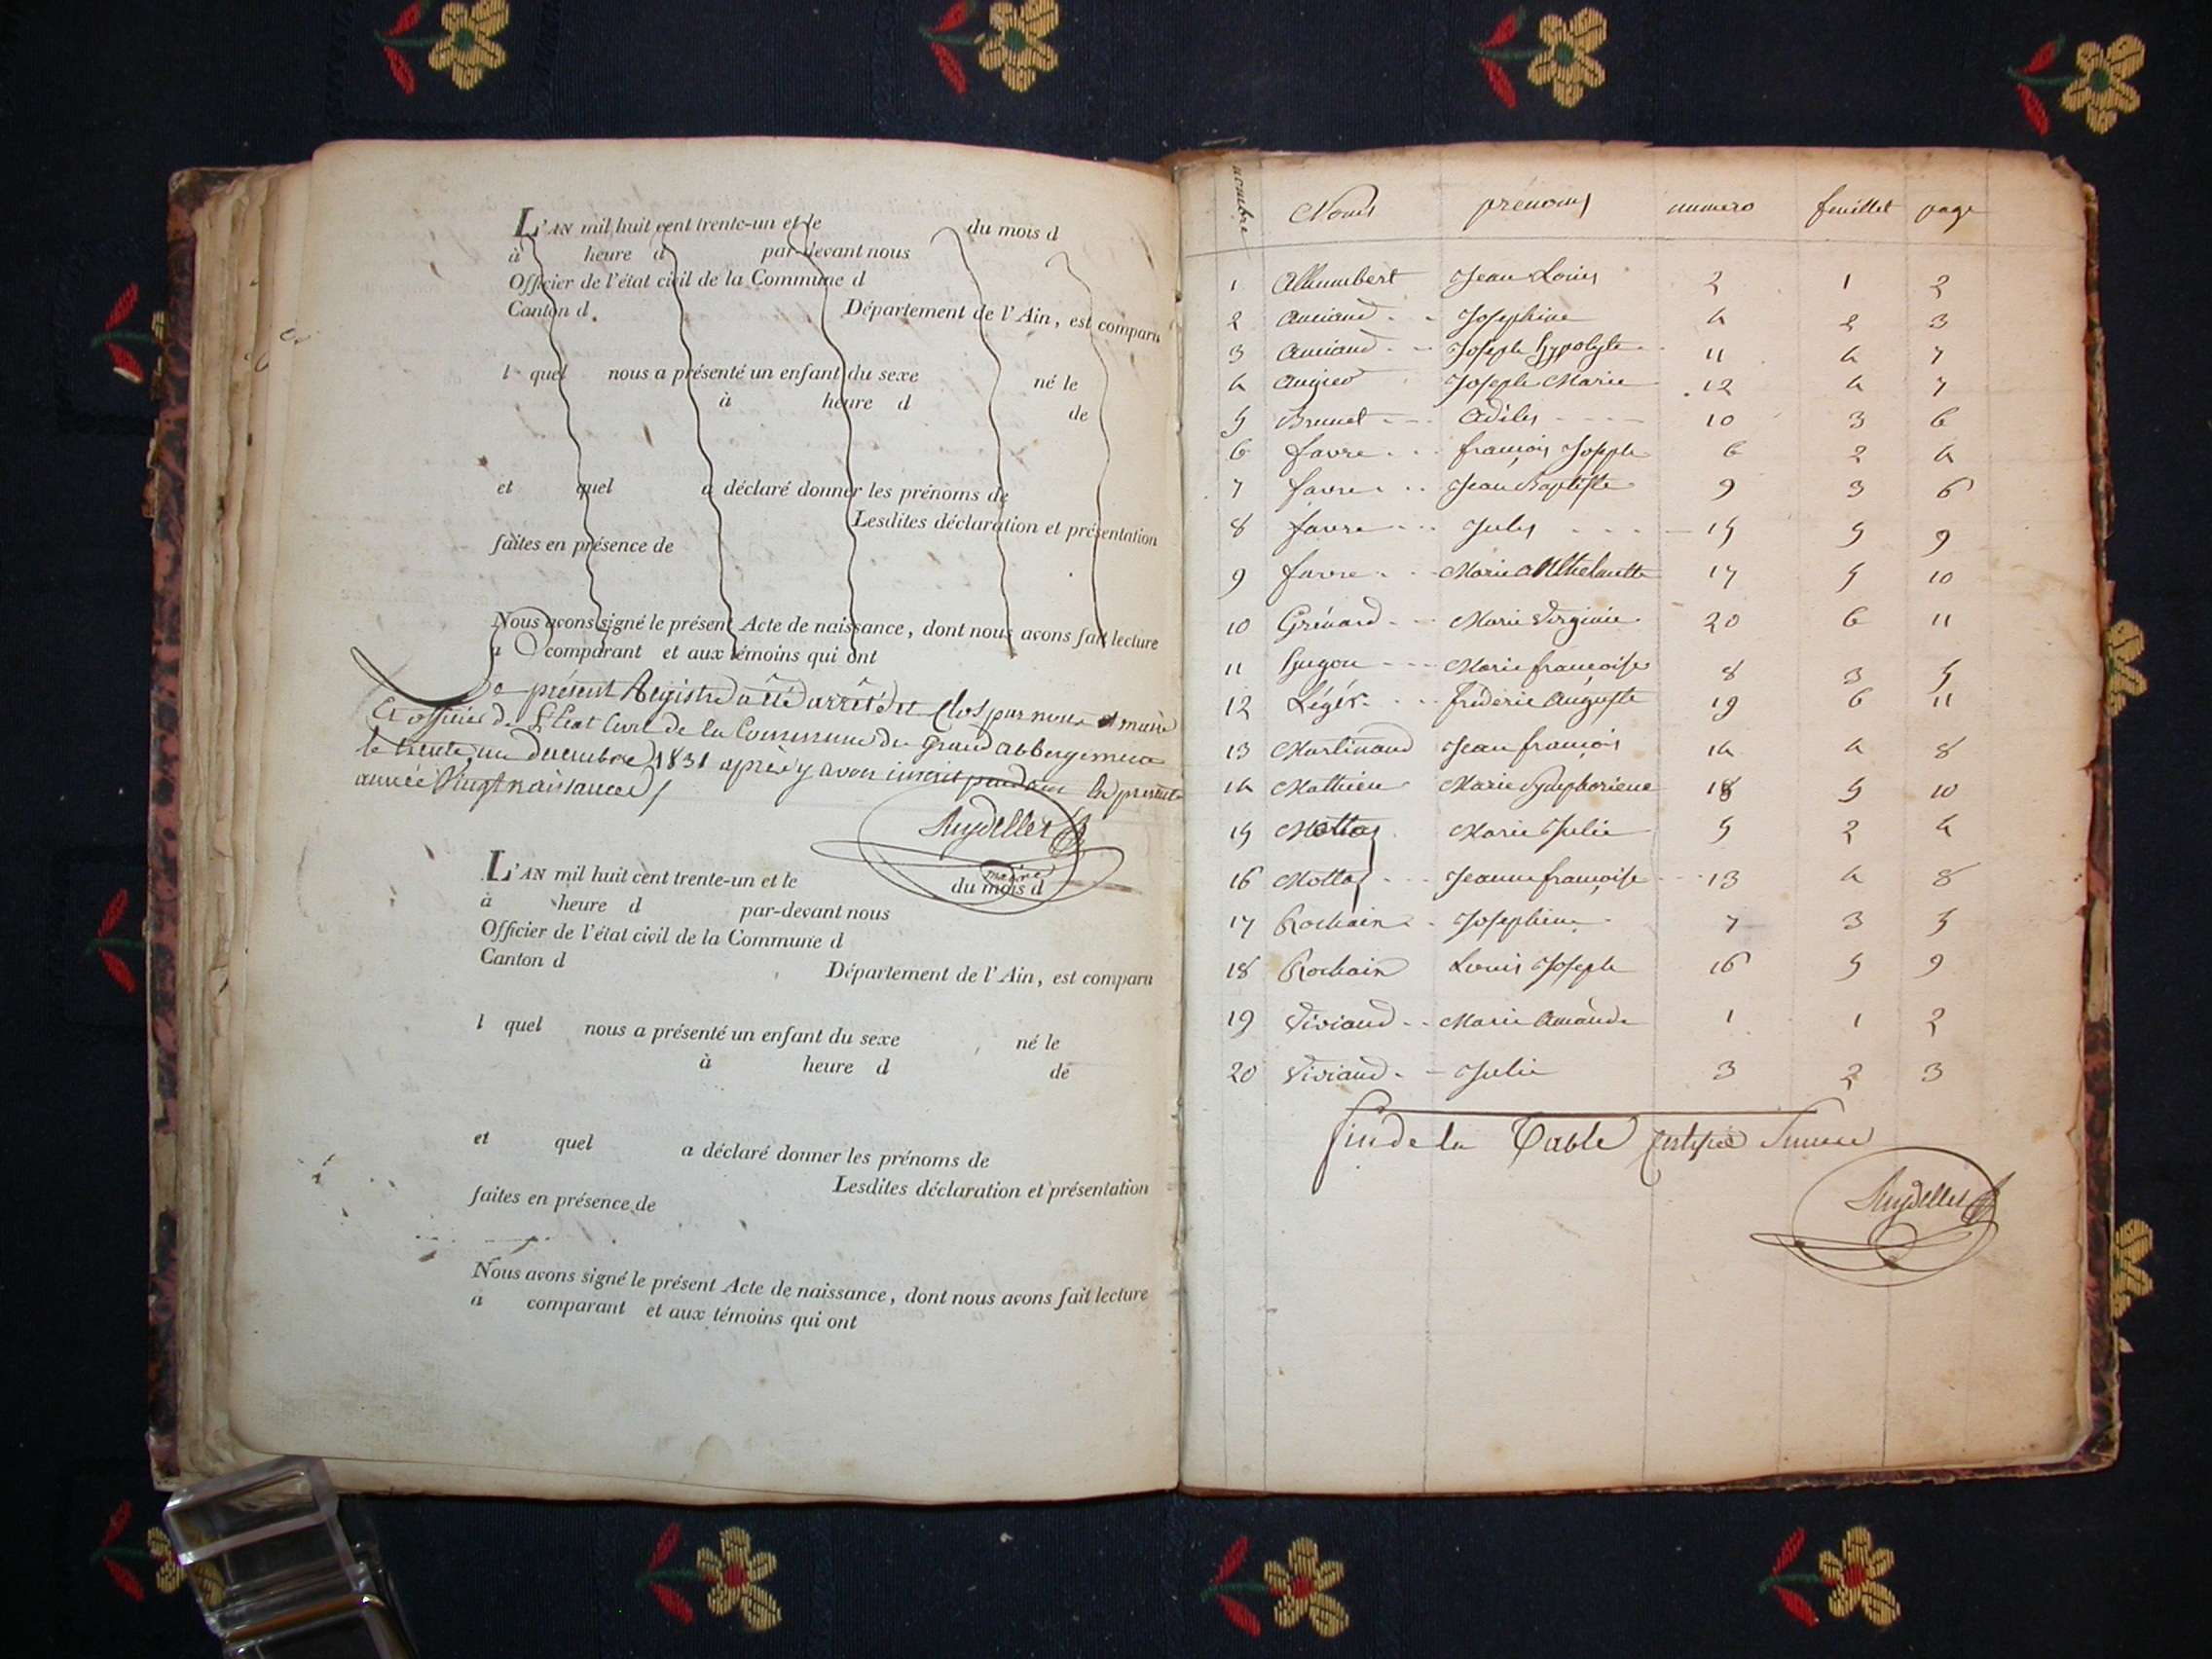 L'AN mil huit cent trente-un et le du mois d
à heure d par-devant nous
Officier de l'état civil de la Commune d
Canton d Département de l'Ain, est comparu
l quel nous a présenté un enfant du sexe né le
à heure d de
et quel a déclaré donner les prénoms de
Lesdites déclaration et présentation
faites en présence de
Nous avons signé le présent Acte de naissance, dont nous avons fait lecture
a comparant et aux témoins qui ont
Le présent Registre a été arrêté et Clos par nous maire
Et officier de l'Etat Civil de la Commune du Grand abbergement
le trente un decembre 1831 après y avoir inscrit pendant la presente
année Vingt naissances
maire
L'AN mil huit cent trente-un et le du mois d
à heure d par-devant nous
Officier de l'état civil de la Commune d
Canton d Département de l'Ain, est comparu
l quel nous a présenté un enfant du sexe né le
à heure d de
et quel a déclaré donner les prénoms de
Lesdites déclaration et présentation
faites en présence de
Nous avons signé le présent Acte de naissance, dont nous avons fait lecture
a comparant et aux témoins qui ont
nombre Noms prénoms numero feuillet page
1 Allumbert Jean Louis 2 1 2
2 Anciand Josephine 4 2 3
3 Anciand Joseph hypolyte 11 4 7
4 Joseph Marie 12 4 7
5 Brunet Adèles 10 3 6
6 favre françois Joseph 6 2 4
7 favre Jean Baptiste 9 3 6
8 favre Jules 15 5 9
9 favre Marie 17 5 10
10 Grénard Marie Virginie 20 6 11
11 hugon Marie françoise 8 3 5
12 Légér fréderic Auguste 19 6 11
13 Martinand Jean françois 14 4 8
14 Mathieu Marie Symphoriene 18 5 10
15 Mottaz Marie Julie 5 2 4
16 Mottaz Jeanne françoise 13 4 8
17 Rochaix Josephine 7 3 5
18 Rochaix Louis Joseph 16 5 9
19 Viviand Marie Amande 1 1 2
20 Viviand Julie 3 2 3
fin de la Table Certifiée